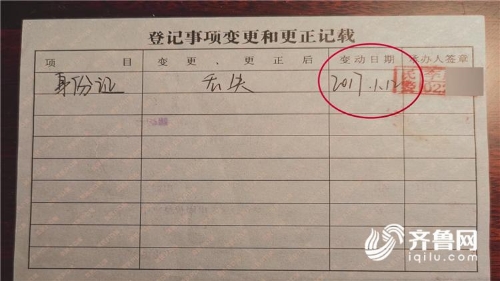 登记事项变更和更正记载
项 目 变更、更正后 变动日期 承办人签章
身份证 丢失 2017.1.12
齐鲁网
iqilu.com